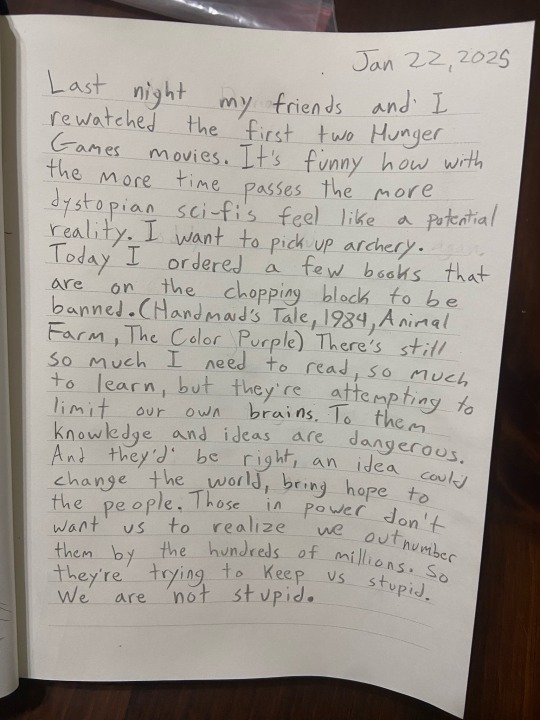 Jan 22, 2025
Last night my friends and I
rewatched the first two Hunger
Games movies. It's funny how with
the more time passes the more
dystopian sci-fi's feel like a potential
reality. I want to pick up archery.
Today I ordered a few books that
are on the chopping block to be
banned. (Handmaid's Tale, 1984, Animal
Farm, The Color Purple) There's still
so much I need to read, so much
to learn, but they're attempting to
limit our own brains. To them
knowledge and ideas are dangerous.
And they'd be right, an idea could
change the world, bring hope to
the people. Those in power don't
want us to realize we outnumber
them by the hundreds of millions. So
they're trying to keep us stupid.
We are not stupid.